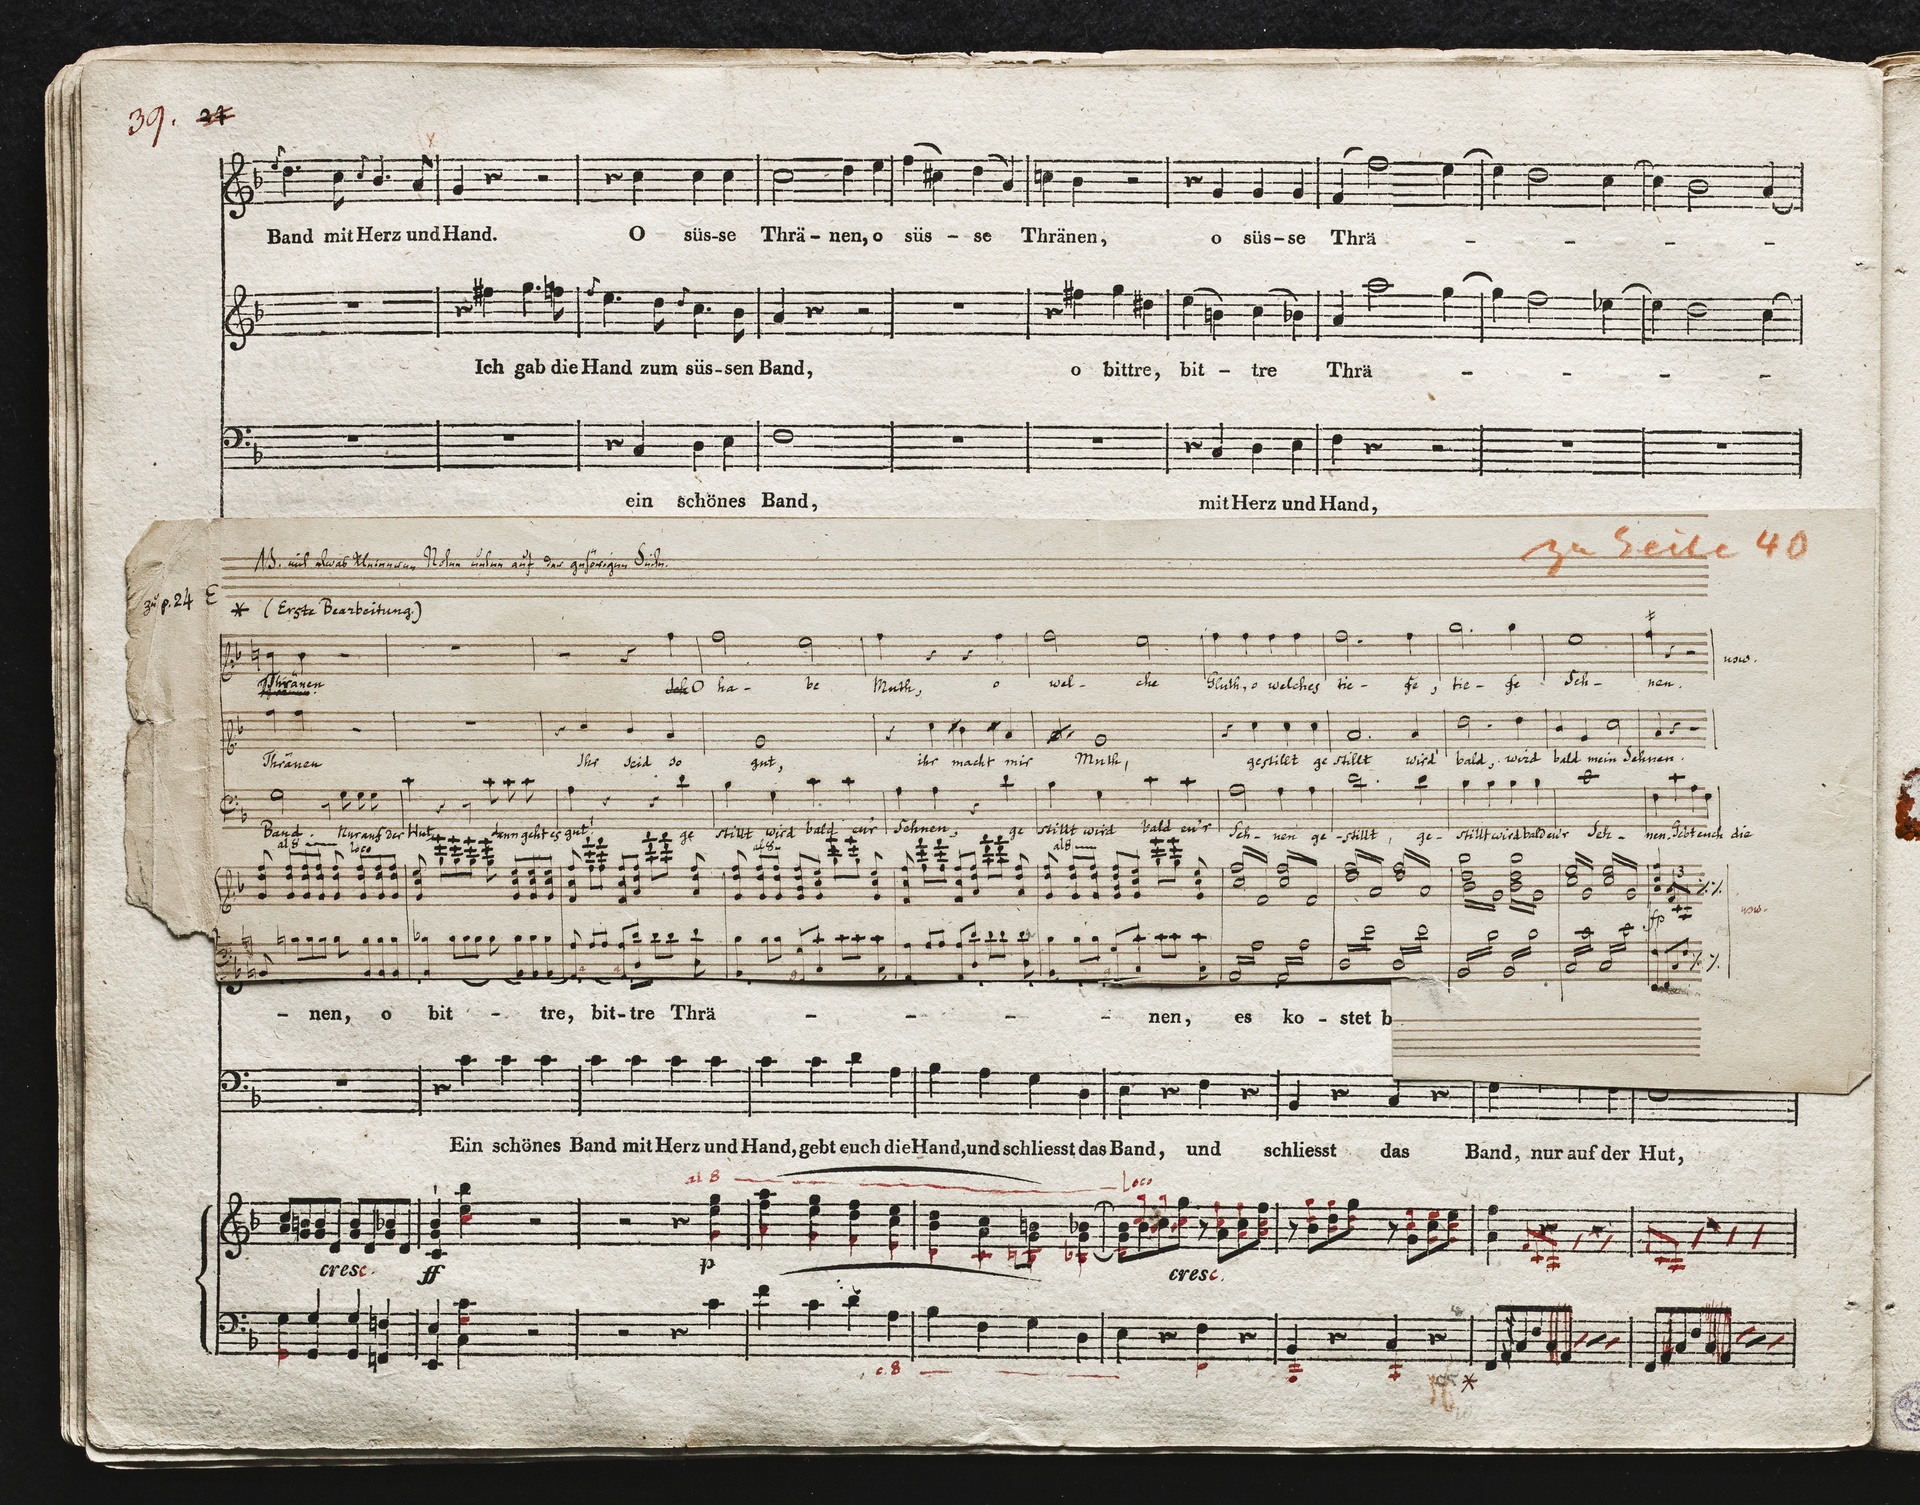 39. 24
Band mit Herz und Hand. O süs-se Thrä-nen, o süs-se Thränen, o süs-se Thrä - - - - - -
Ich gab die Hand zum süs-sen Band, o bittre, bit-tre Thrä - - - - -
ein schönes Band, mit Herz und Hand,
zu Seite 40
NB. mit etwas kleineren Noten unten auf der gehörigen Seite.
zu p. 24
* (Erste Bearbeitung.)
Thränen O ha- be Muth, o wel- che Gluth, o welches tie- fe, tie- fe Seh- nen. usw.
Thränen Ihr seid so gut, ihr macht mir Muth, gestillt ge stillt wird bald, wird bald mein Sehnen.
Band. Nur auf der Hut, dann geht es gut! ge stillt wird bald eu'r Sehnen, ge stillt wird bald eu'r Seh- nen ge-stillt, ge- stillt wird bald eu'r Seh- nen. Gebt euch die
al 8 loco al 8 al 8
fp usw.
- nen, o bit - tre, bit-tre Thrä - - - - nen, es ko-stet b
Ein schönes Band mit Herz und Hand, gebt euch die Hand, und schliesst das Band, und schliesst das Band, nur auf der Hut,
al 8 Loco
cresc. ff p cresc.
c. 8
*